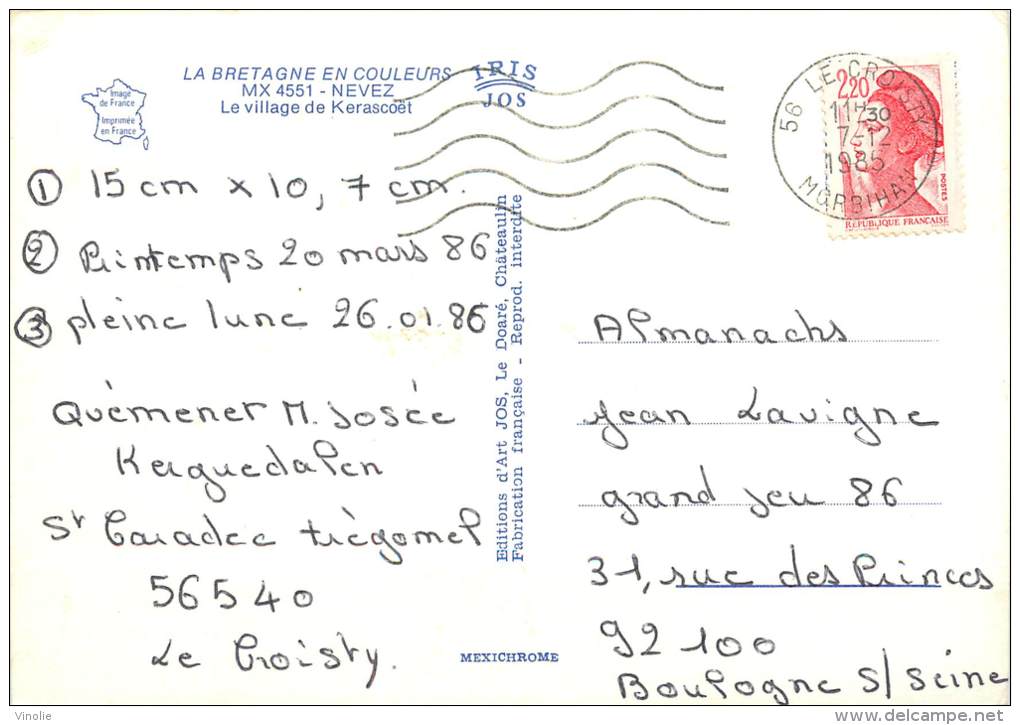 LA BRETAGNE EN COULEURS
MX 4551 - NEVEZ
Le village de Kerascoët
IRIS
JOS
Image
de France
Imprimée
en France
56 LE CROISTY
11H30
7-12
1985
MORBIHAN
2,20
POSTES
REPUBLIQUE FRANÇAISE
① 15 cm x 10,7 cm.
② Printemps 20 mars 86
③ pleine lune 26.01.86
Quémener M. Josée
Kerguedalen
St Caradec trégomel
56540
Le Croisty.
Editions d'Art JOS, Le Doaré, Châteaulin
Fabrication française - Reprod. interdite
MEXICHROME
Almanachs
Jean Lavigne
grand jeu 86
31, rue des Princes
92100
Boulogne s/ Seine
Vinolie
www.delcampe.net